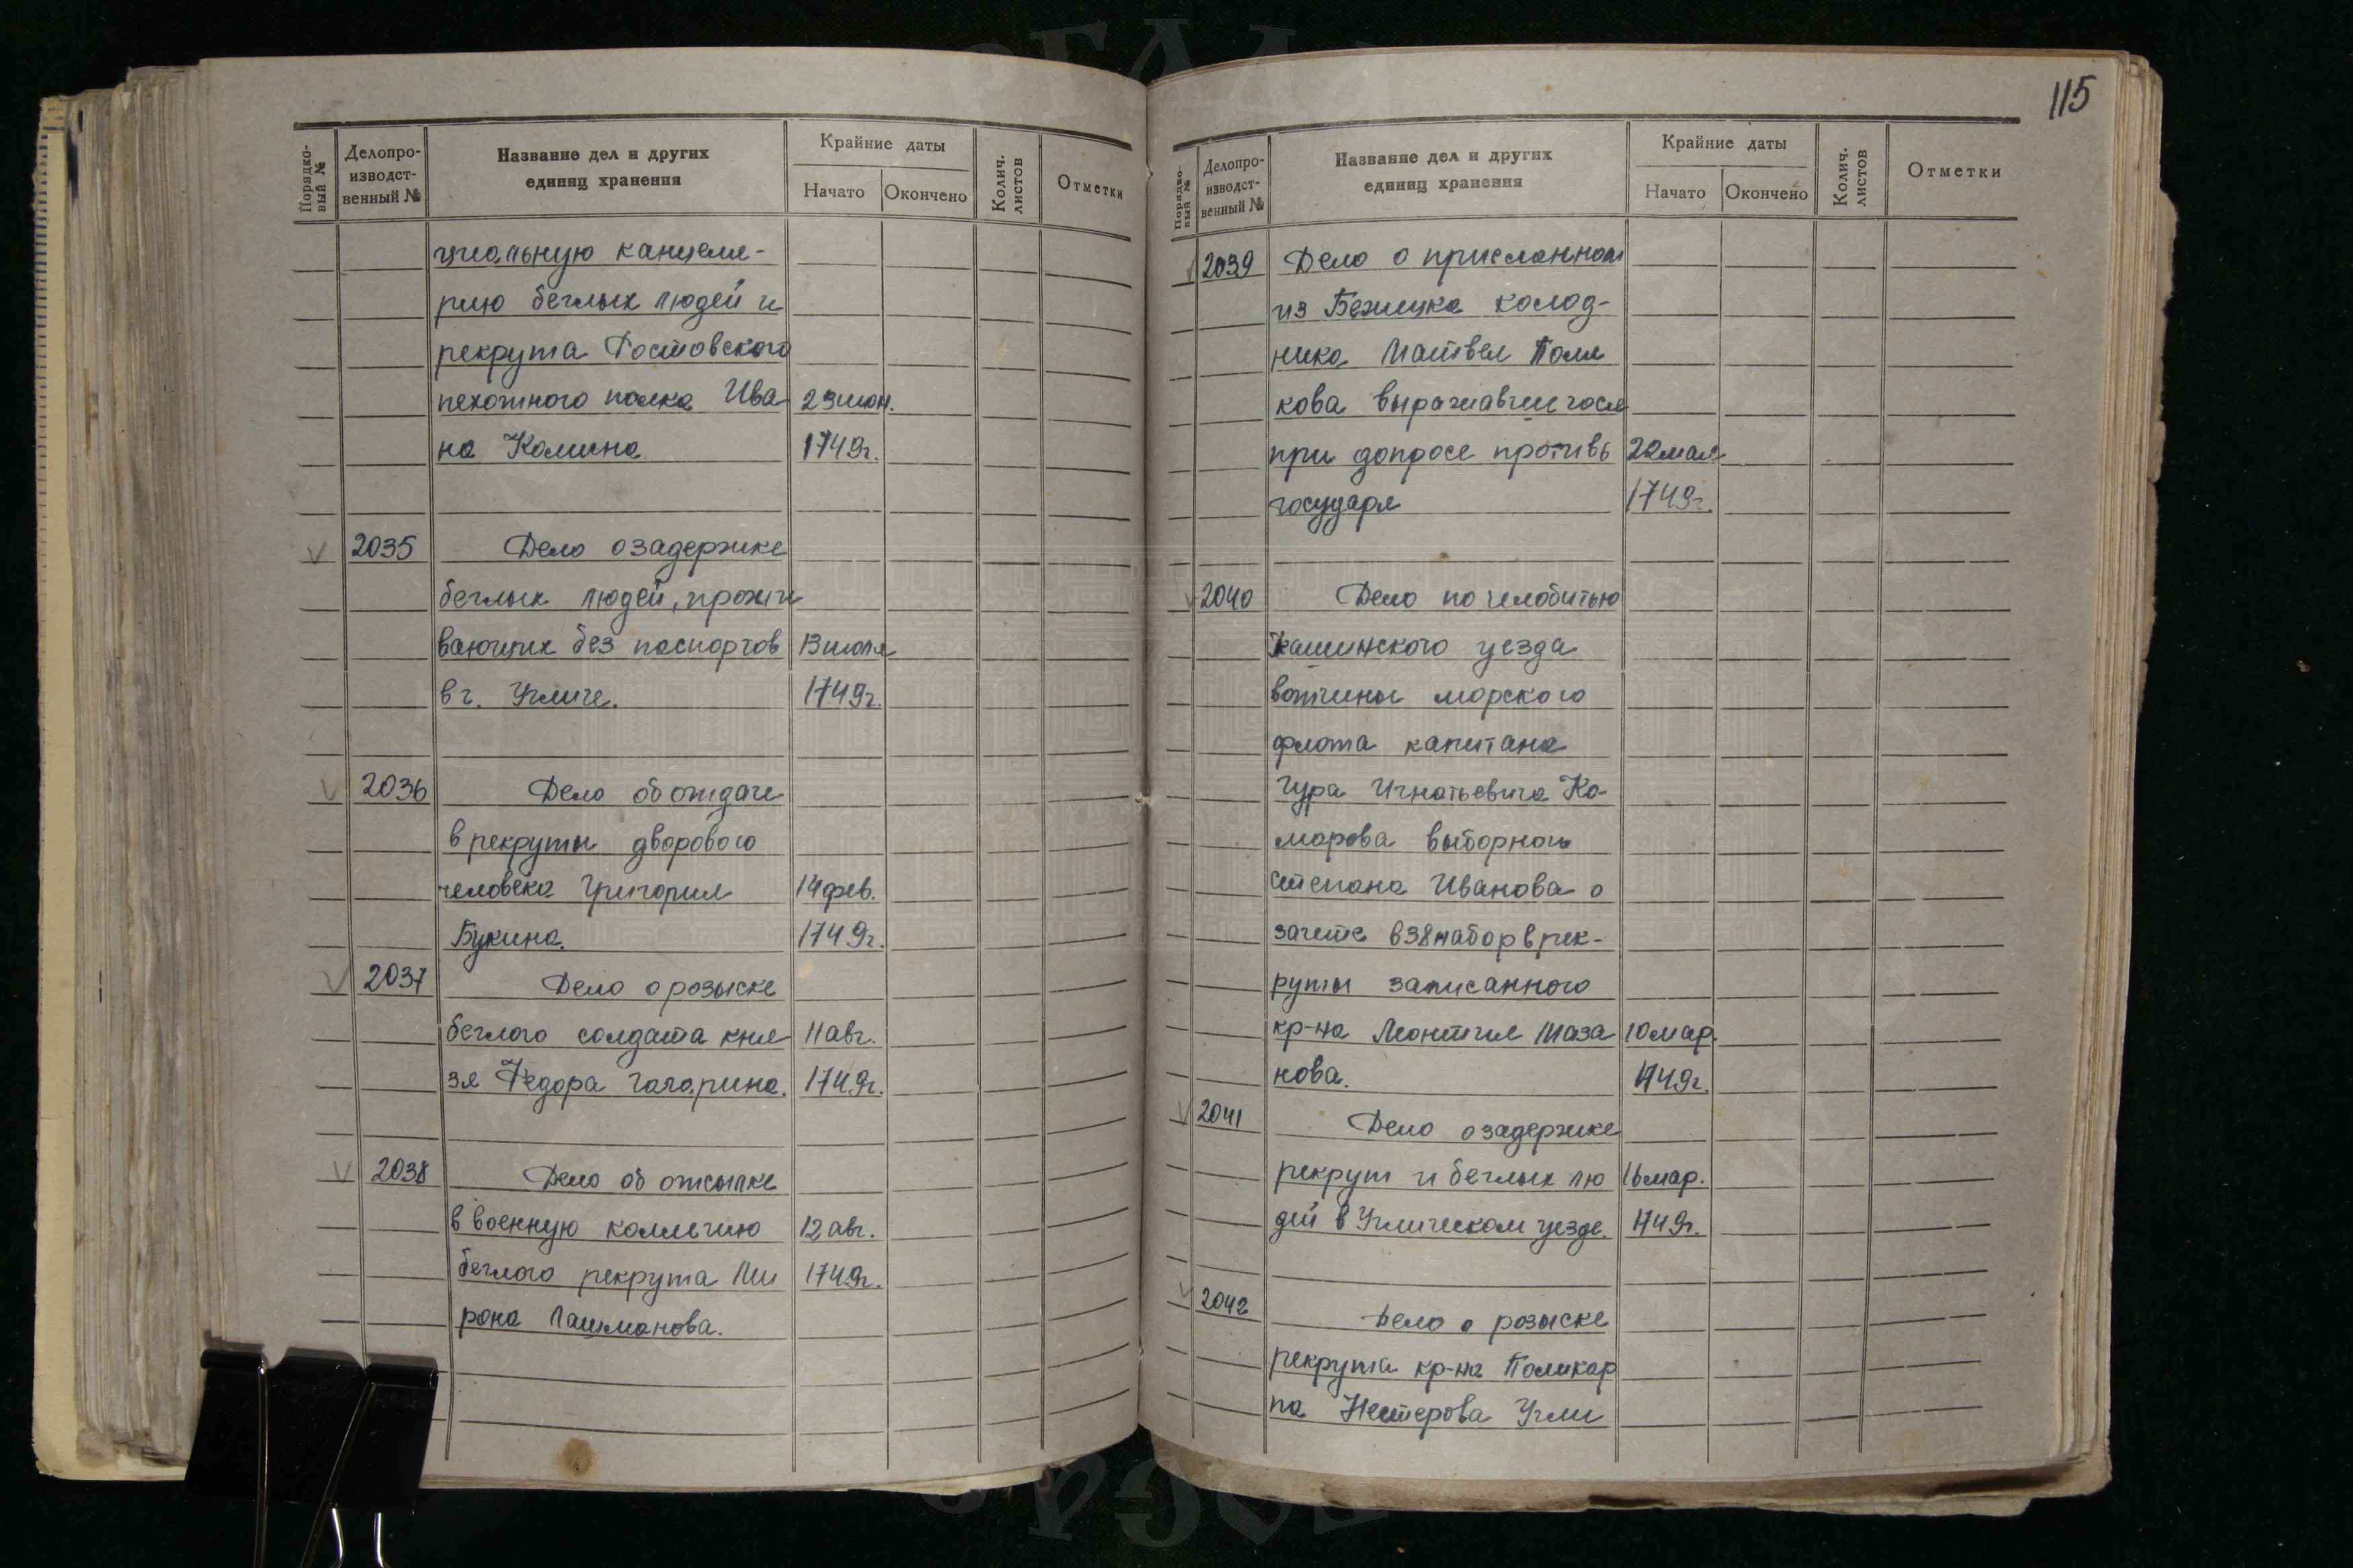 Порядко-
вый №
Делопро-
изводст-
венный №
Название дел и других
единиц хранения
Крайние даты
Начато
Окончено
Колич.
листов
Отметки
циальную канцеля-
рию беглых людей и
рекрута Ростовского
пехотного полка Ива 23 июн.
на Калина 1749г.
2035 Дело о задержке
беглых людей, прожи
вающих без паспортов 13 июля
в г. Угличе. 1749г.
2036 Дело об отдаче
в рекруты дворового
человека Григория 14 фев.
Букина. 1749г.
2037 Дело о розыске
беглого солдата кня 11 авг.
зя Федора Гагарина. 1749г.
2038 Дело об отсылке
в военную коллегию 12 авг.
беглого рекрута Ми 1749г.
рона Лашманова.
115
Порядко-
вый №
Делопро-
изводст-
венный №
Название дел и других
единиц хранения
Крайние даты
Начато
Окончено
Колич.
листов
Отметки
2039 Дело о присланном
из Бежицка колод-
ника Матвея Поля
кова выражавшегося
при допросе противъ 22 мая
государя 1749г.
2040 Дело по челобитью
Кашинского уезда
вотчины морского
флота капитана
Гура Игнатьевича Ко-
марова выборного
Степана Иванова о
зачете в 38 набор в рек-
руты записанного
кр-на Леонтия Маза 10 мар.
нова. 1749г.
2041 Дело о задержке
рекрут и беглых лю 16 мар.
дей в Угличском уезде. 1749г.
2042 Дело о розыске
рекрута кр-на Поликар
па Нестерова Угли